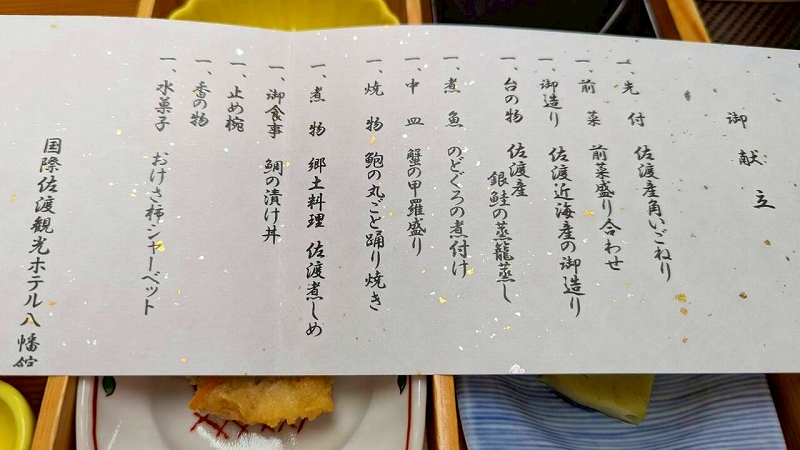 御献立
一、先付 佐渡産角いごねり
一、前菜 前菜盛り合わせ
一、御造り 佐渡近海産の御造り
一、台の物 佐渡産
銀鮭の蒸籠蒸し
一、煮魚 のどぐろの煮付け
一、中皿 蟹の甲羅盛り
一、焼物 鮑の丸ごと踊り焼き
一、煮物 郷土料理 佐渡煮しめ
一、御食事 鯛の漬け丼
一、止め椀
一、香の物
一、水菓子 おけさ柿シャーベット
国際佐渡観光ホテル八幡館